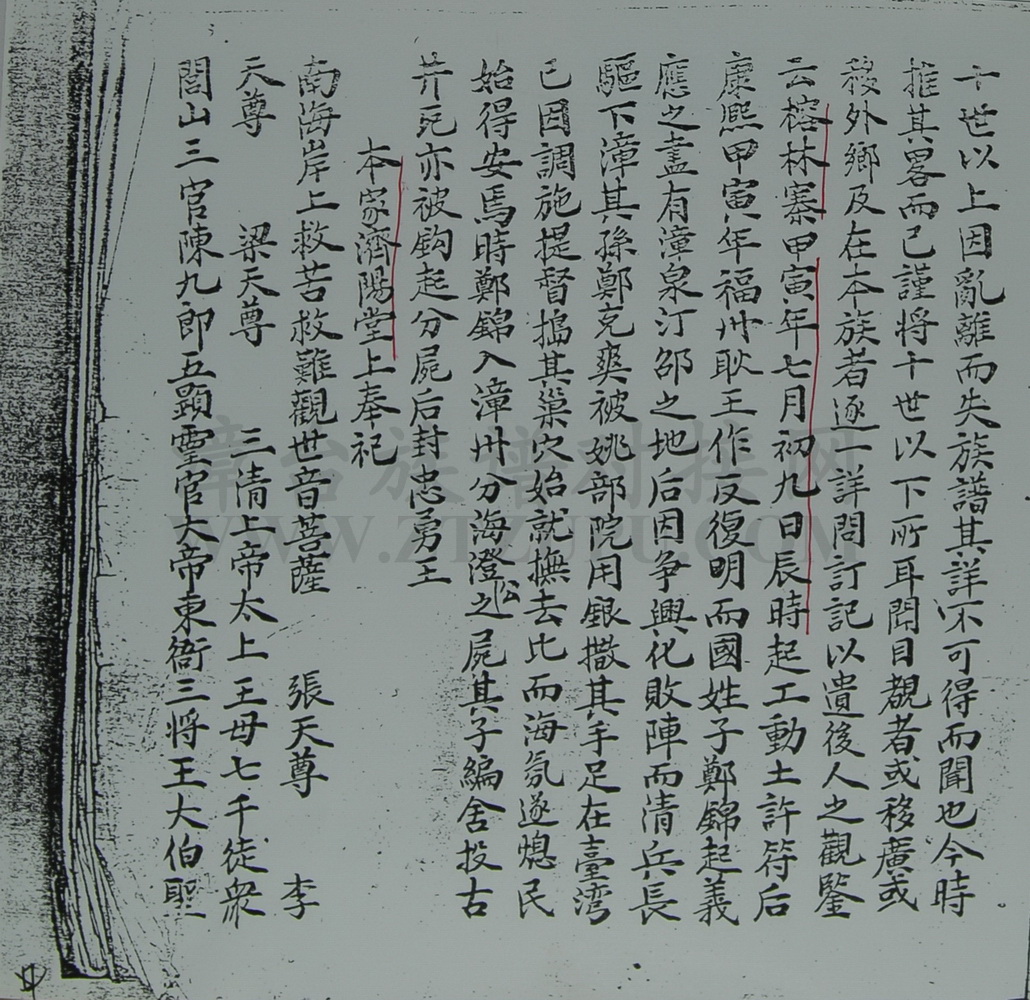 十世以上因亂離而失族譜其詳不可得而聞也今時
推其畧而已謹將十世以下所耳聞目覩者或移廣或
移外鄉及在本族者逐一詳問訂記以遺後人之觀鍳
云榕林寨甲寅年七月初九日辰時起工動土許符后
康熙甲寅年福州耿王作反復明而國姓子鄭錦起義
應之盡有漳泉汀邵之地后因争興化敗陣而清兵長
驅下漳其孫鄭克塽被姚部院用銀撒其手足在臺湾
已因調施提督搗其巢穴始就撫去比而海氛遂熄民
始得安焉時鄭錦入漳州分海澄公之屍其子編舍投古
井死亦被鈎起分屍后封忠勇王
本家濟陽堂上奉祀
南海岸上救苦救難觀世音菩薩 張天尊 李
天尊 梁天尊 三清上帝太上王母七千徒衆
閭山三官陳九郎五顕靈官大帝東衙三将王大伯聖
章台族譜对接网
WWW.ZTZUPU.COM